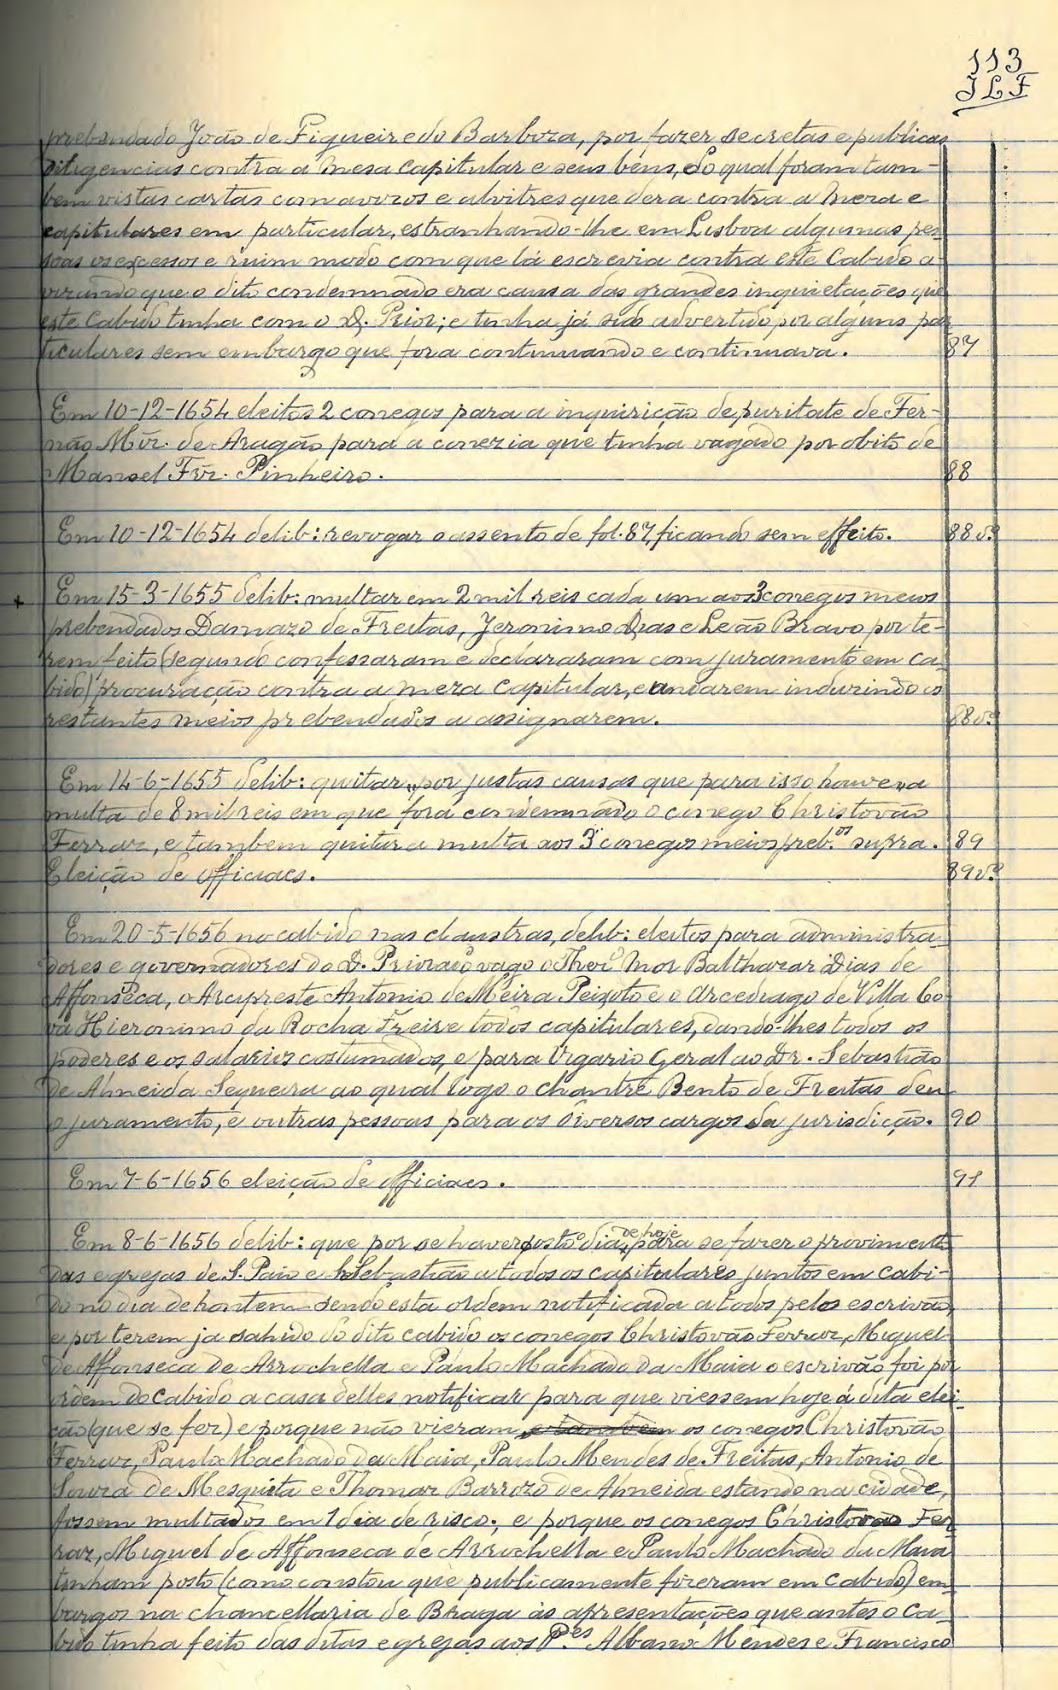 113
JLF
prebendado João de Figueiredo Barboza, por fazer secretas e publicas
diligencias contra a mesa capitular e seus bens, do qual foram tam-
bem vistas cartas com avizos e alvitres que dera contra a meza e
capitulares em particular, estranhando-lhe em Lisboa algumas pes-
soas os excessos e ruim modo com que lá escrevia contra este Cabido a-
vizando que o dito condemnado era causa das grandes inquietações que
este Cabido tinha com o D. Prior; e tinha já sido advertido por alguns par
ticulares sem embargo que fora continuando e continuava. 87
Em 10-12-1654 eleitos 2 conegos para a inquirição de puritate de Fer-
não Miz. de Aragão para a conezia que tinha vagado por obito de
Manoel Frz. Pinheiro. 88
Em 10-12-1654 delib: revogar o assento de fol. 87, ficando sem effeito. 88 v.º
+ Em 15-3-1655 delib: multar em 2 mil reis cada um aos 3 conegos meios
prebendados Damazo de Freitas, Jeronimo Dias e Leão Bravo por te-
rem feito (segundo confessaram e declararam com juramento em ca-
bido) procuração contra a meza capitular, e andarem induzindo os
restantes meios prebendados a assignarem. 88 v.º
Em 14-6-1655 delib: quitar, por justas causas que para isso houve, a
multa de 8 mil reis em que fora condemnado o conego Christovão
Ferraz, e tambem quitar a multa aos 3 conegos meios preb.os supra. 89
Eleição de officiaes. 89 v.º
Em 20-5-1656 no cabido nas claustras, delib: eleitos para administra-
dores e governadores do D. Priorado vago o Thez.º Mor Balthazar Dias de
Affonseca, o Arcypreste Antonio de Meira Peixoto e o Arcediago de Villa Co-
va Hieronimo da Rocha Freire todos capitulares, dando-lhes todos os
poderes e os salarios costumados, e para Vigario Geral ao Dr. Sebastião
de Almeida Sequeira ao qual logo o chantre Bento de Freitas deu
o juramento, e outras pessoas para os diversos cargos da jurisdicção. 90
Em 7-6-1656 eleição de officiaes. 91
Em 8-6-1656 delib: que por se haver posto o dia de hoje para se fazer o provimento
das egrejas de S. Paio e S. Sebastião a todos os capitulares juntos em cabi-
do no dia de hontem sendo esta ordem notificada a todos pelo escrivão,
e por terem ja sahido do dito cabido os conegos Christovão Ferraz, Miguel
de Affonseca de Arrochella e Paulo Machado da Maia o escrivão foi por
ordem do Cabido a casa delles notificar para que viessem hoje á dita elei-
ção (que se fez) e porque não vieram os conegos Christovão
Ferraz, Paulo Machado da Maia, Paulo Mendes de Freitas, Antonio de
Souza de Mesquita e Thomaz Barrozo de Almeida estando na cidade,
fossem multados em 1 dia de risco; e porque os conegos Christovão Fer
raz, Miguel de Affonseca de Arrochella e Paulo Machado da Maia
tinham posto (como constou que publicamente fizeram em Cabido) em-
bargos na chancellaria de Braga ás apresentações que antes o Ca-
bido tinha feito das ditas egrejas aos P.es Albano Mendes e Francisco